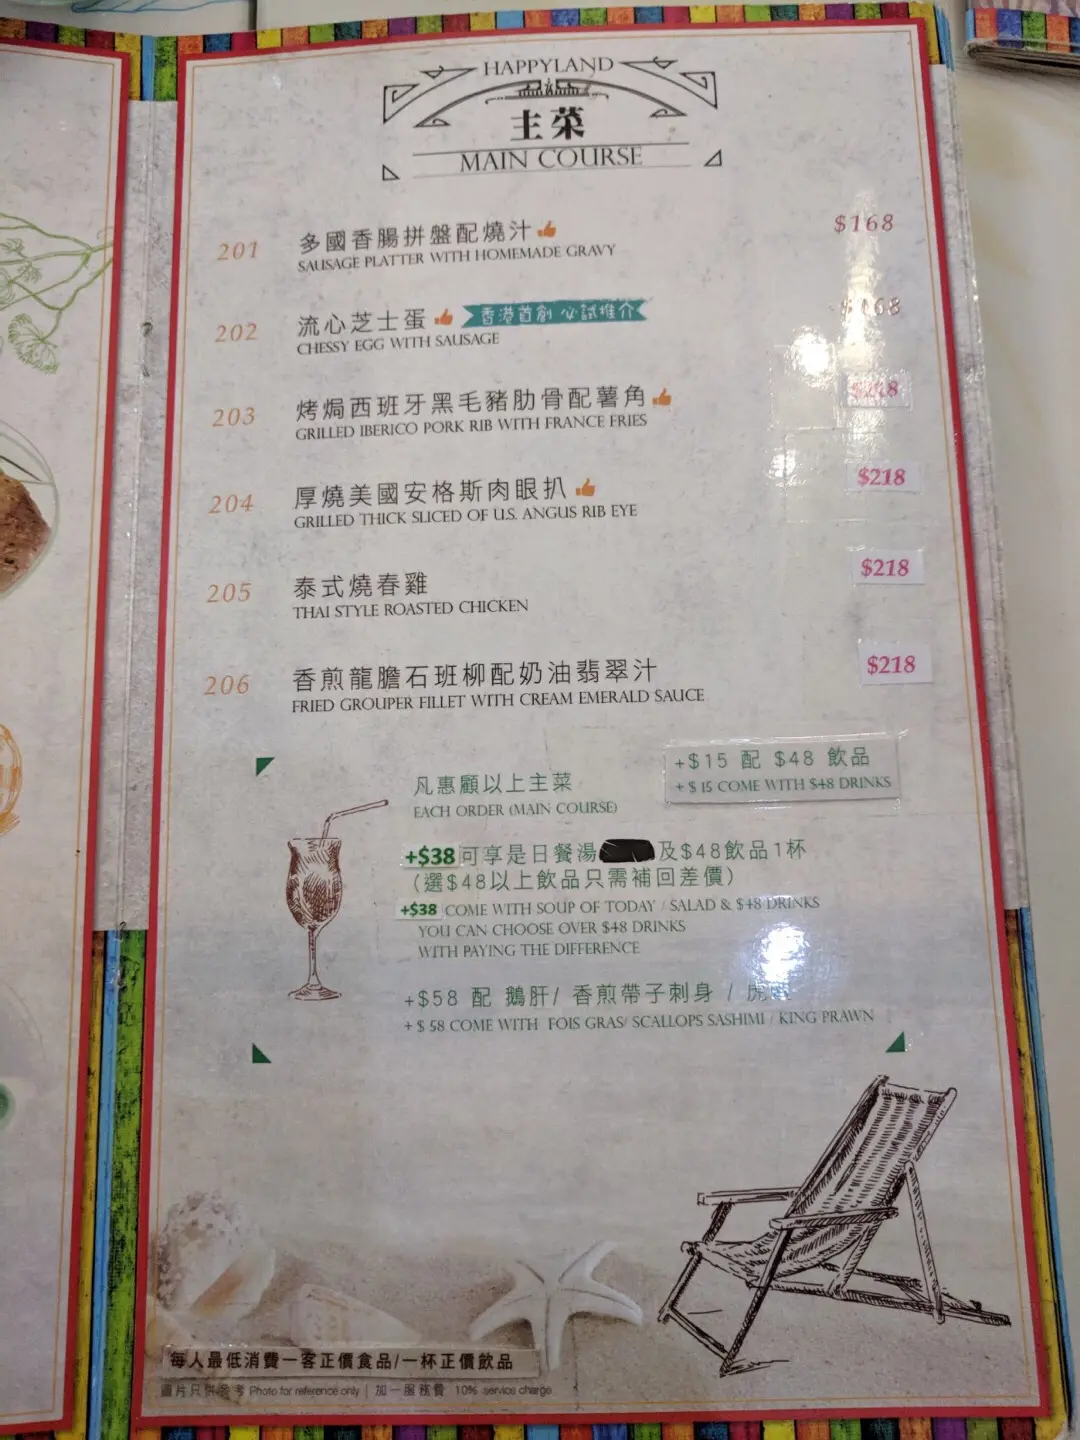 HAPPYLAND
主菜
MAIN COURSE
201 多國香腸拼盤配燒汁 $168
SAUSAGE PLATTER WITH HOMEMADE GRAVY
202 流心芝士蛋 香港首創 必試推介 $168
CHESSY EGG WITH SAUSAGE
203 烤焗西班牙黑毛豬肋骨配薯角
GRILLED IBERICO PORK RIB WITH FRANCE FRIES
204 厚燒美國安格斯肉眼扒 $218
GRILLED THICK SLICED OF U.S. ANGUS RIB EYE
205 泰式燒春雞 $218
THAI STYLE ROASTED CHICKEN
206 香煎龍膽石班柳配奶油翡翠汁 $218
FRIED GROUPER FILLET WITH CREAM EMERALD SAUCE
+$15 配 $48 飲品
+ $ 15 COME WITH $48 DRINKS
凡惠顧以上主菜
EACH ORDER (MAIN COURSE)
+$38 可享是日餐湯 及$48飲品1杯
(選$48以上飲品只需補回差價)
+$38 COME WITH SOUP OF TODAY / SALAD & $48 DRINKS
YOU CAN CHOOSE OVER $48 DRINKS
WITH PAYING THE DIFFERENCE
+$58 配 鵝肝/ 香煎帶子刺身 / 虎
+ $ 58 COME WITH FOIS GRAS/ SCALLOPS SASHIMI / KING PRAWN
每人最低消費一客正價食品/一杯正價飲品
圖片只供參考 Photo for reference only | 加一服務費 10% service charge